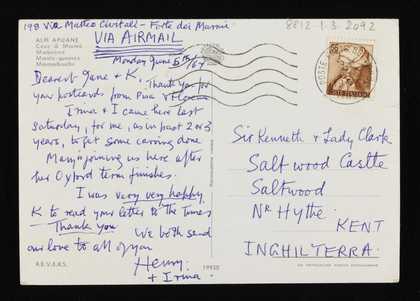 198 Via Matteo Civitali - Forte dei Marmi
8812.1.3.2092
ALPI APUANE
VIA AIRMAIL
Monday June 5th/67
Dearest Jane & K. Thank you for
your postcards from Pisa &
Irma & I came here last
Saturday, for me, as in past 2 or 3
years, to get some carving done
Mary joining us here after
her Oxford term finishes.
I was very very happy
K to read your letter to the Times
Thank you We both send
our love to all of you
Henry.
+ Irma.
Sir Kenneth & Lady Clark
Saltwood Castle
Saltwood
Nr Hythe.
KENT
INGHILTERRA.